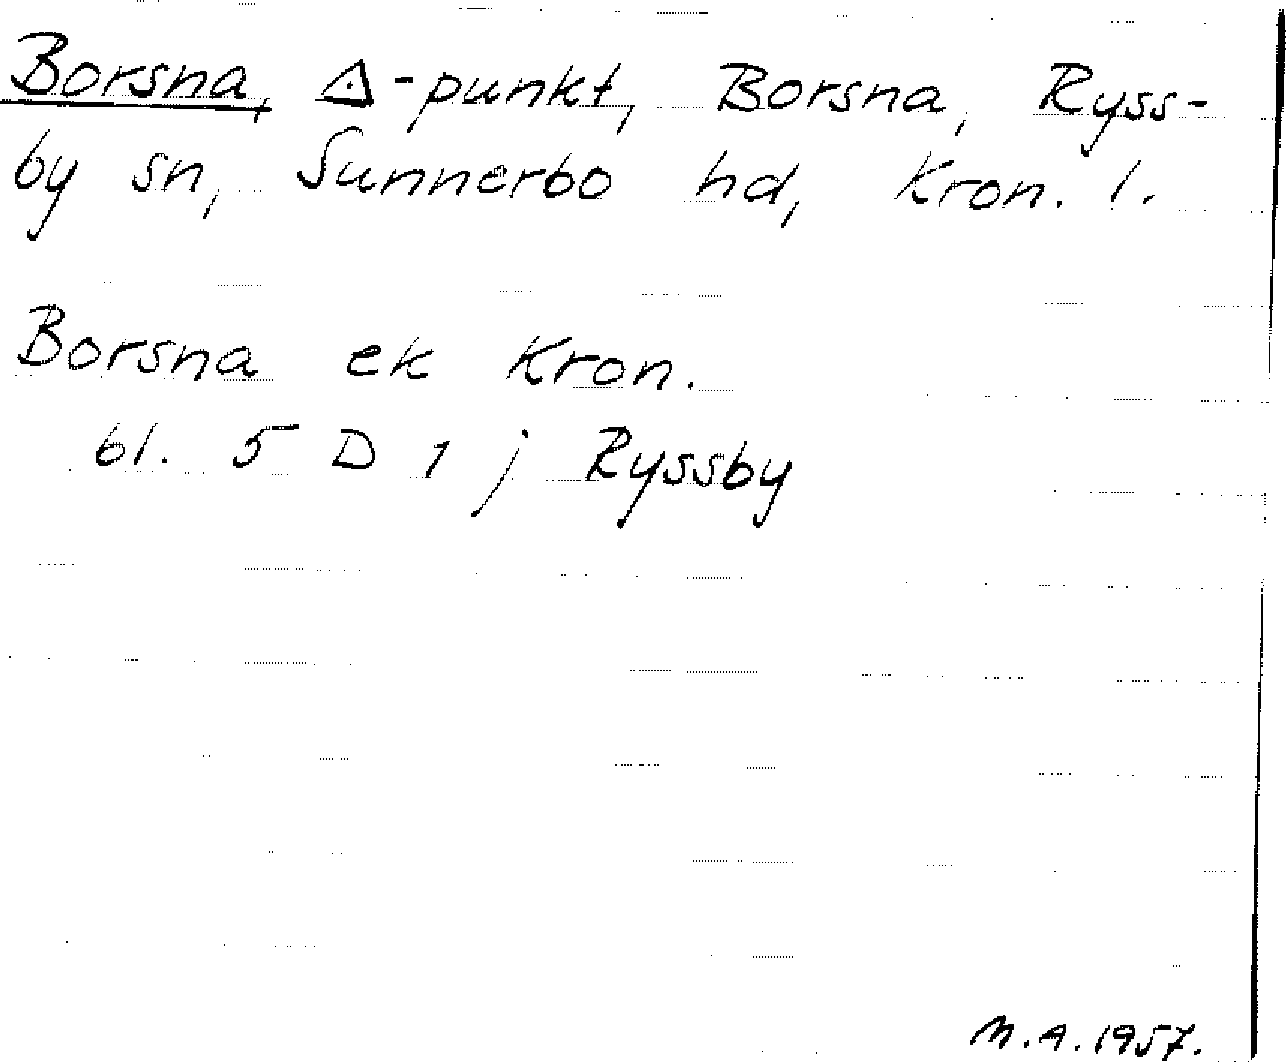 Borsna, △-punkt, Borsna, Ryss-
by sn, Sunnerbo hd, Kron. l.
Borsna ek Kron.
bl. 5 D 1 j Ryssby
M.A. 1957.